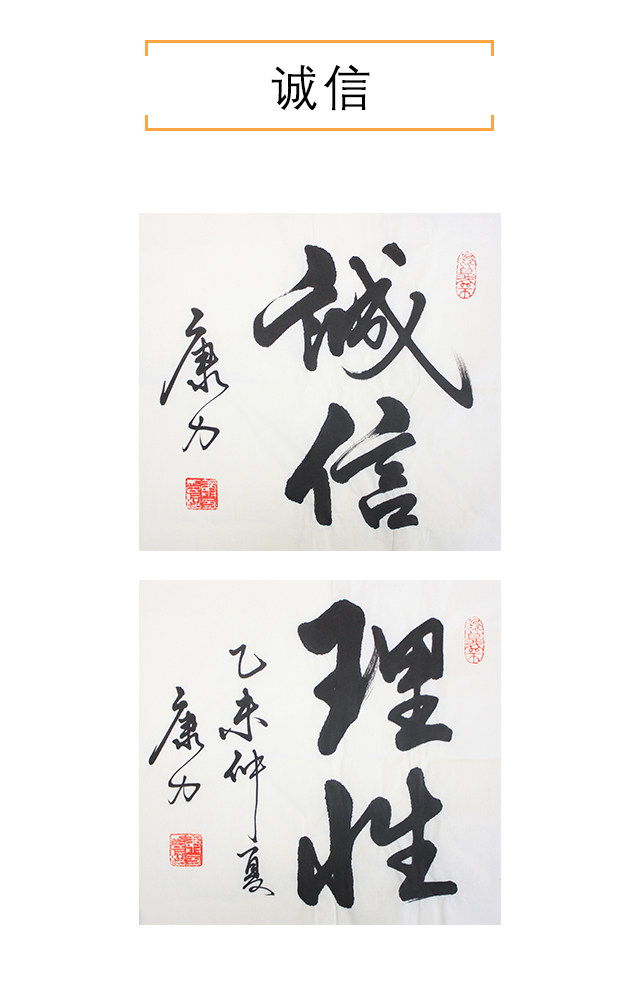 诚信
诚
信
康力
理
性
乙未仲夏
康力